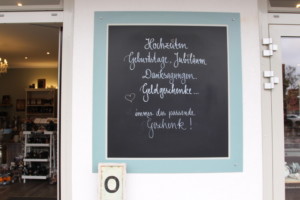 Hochzeiten
Geburtstage, Jubiläum
Danksagungen
Geldgeschenke...
immer das passende
Geschenk!
O